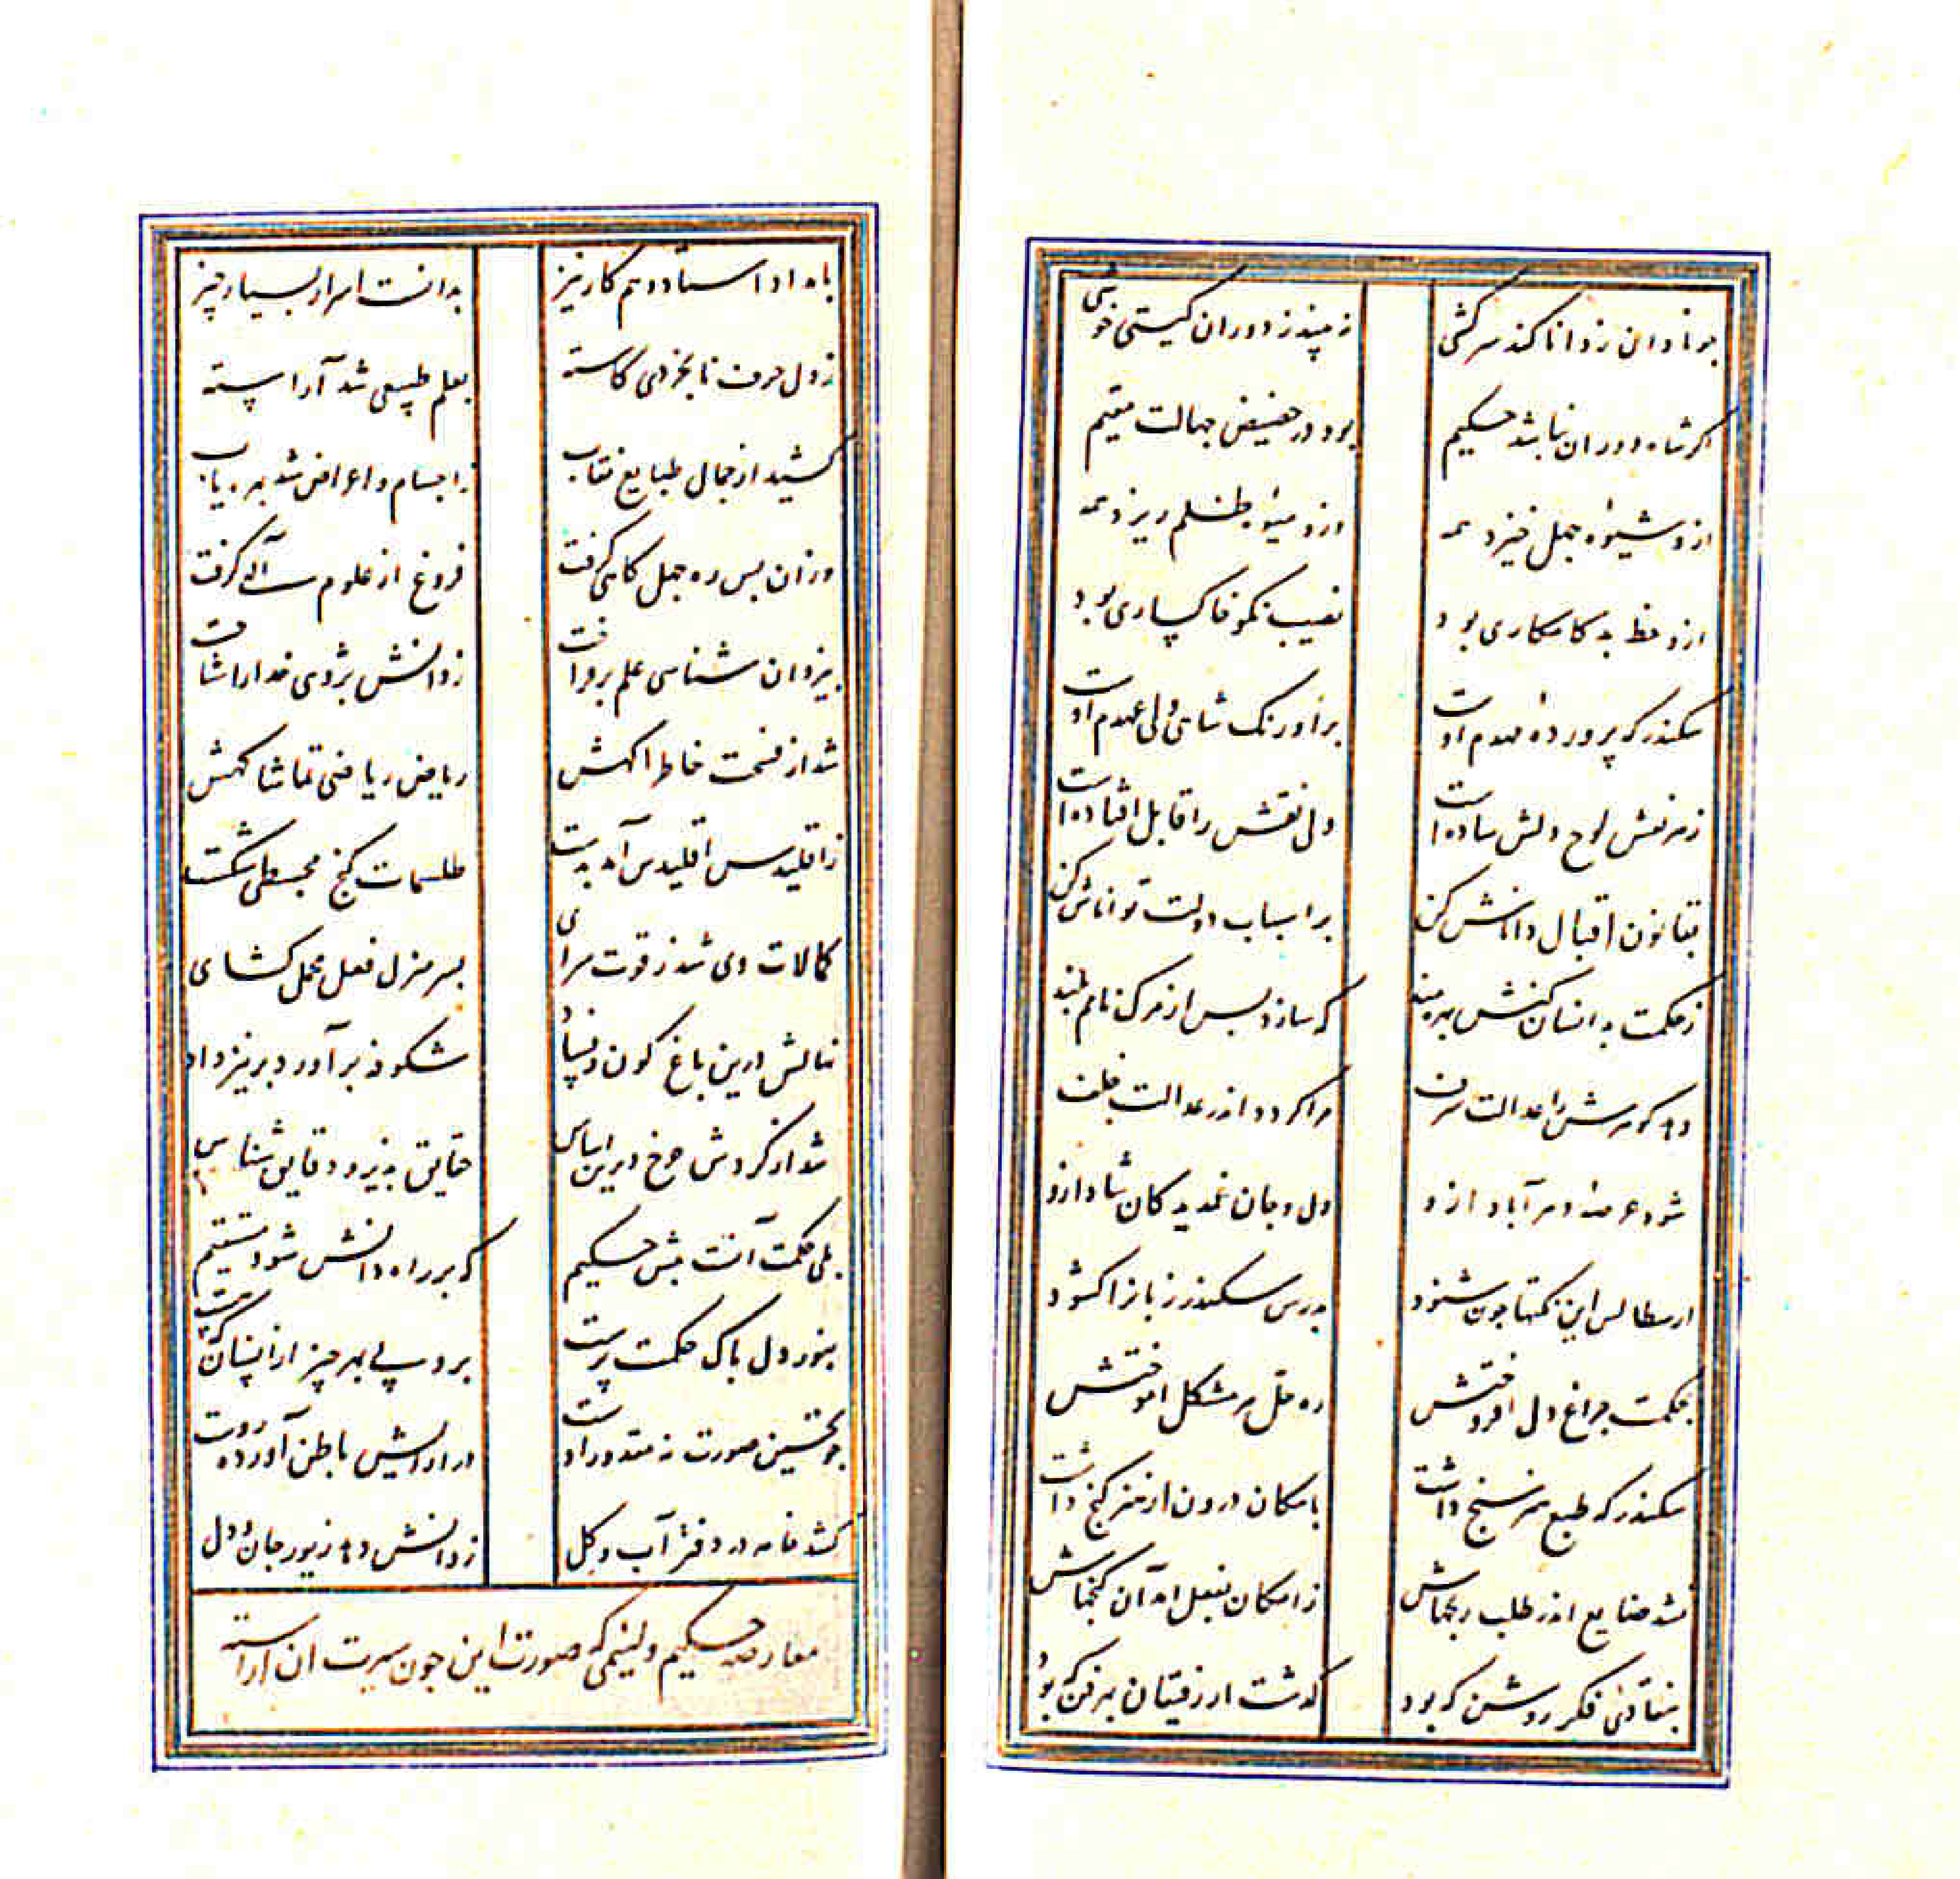 چو نادان ز دانا کند سرکشی نه بیند ز دوران گیتی خوشی
اگر شاه دوران نباشد حکیم بود در حضیض جهالت مقیم
ازو شیوه جهل خیزد همه وزو میوه ظلم ریزد همه
ازو حظ بد کامکاری بود نصیب نکو خاکساری بود
سکندر که پرورده مهدم اوست بر اورنک شاهی ولی عهدم اوست
ز هر نقش لوح دلش ساده است ولی نقش را قابل افتاده است
بقانون اقبال داناش کن بر اسباب دولت تواناش کن
ز حکمت به انسان کنش بهره مند که سازد پس از مرک نامم بلند
دهد کوهرش را عدالت شرف مرا کردد اندر عدالت خلف
شود عرصه دهر آباد ازو دل و جان غمدیدکان شاد ازو
ارسطالس این نکتها چون شنود بدرس سکندر زبانرا کشود
بحکمت چراغ دل افروختش ره حل هر مشکل اموختش
سکندر که طبع هنر سنج داشت بامکان درون از هنر کنج داشت
نشد ضایع اندر طلب رنجهاش ز امکان بفعل امد آن کنجهاش
بنقادئ فکر روشن که بود کذشت از رفیقان بهر فن که بود
بامداد استاد و هم کار نیز بدانست اسرار بسیار چیز
ز دل حرف نابخردی کاسته بعلم طبیعی شد آراسته
کشید از جمال طبایع نقاب ز اجسام و اعراض شد بهره یاب
وزان پس ره جهل کاهی کرفت فروغ از علوم الهی کرفت
بیزدان شناسی علم برفراخت ز دانش پژوهی خدا را شناخت
شد از فسحت خاطر اکهش ریاض ریاضی تماشا کهش
ز اقلیدس اقلیدس آمد بدست طلسمات کنج مجسطی شکست
کمالات وی شد ز قوت سرای بسر منزل فعل محمل کشای
نهالش درین باغ کون و فساد شکوفه برآورد و بر نیز داد
شد از کردش چرخ دیرین اساس حقایق پذیر و دقایق شناس
بلی حکمت آنست پیش حکیم که بر راه دانش شود مستقیم
بنور دل پاک حکمت پرست برد پی بهر چیز از انسان که هست
چو تحسین صورت نه مقدور اوست در ارایش باطن آورده روست
کشد خامه در دفتر آب و کل ز دانش دهد زیور جان و دل
معارضه حکیم و لئیمی که صورت این چون سیرت ان اراسته